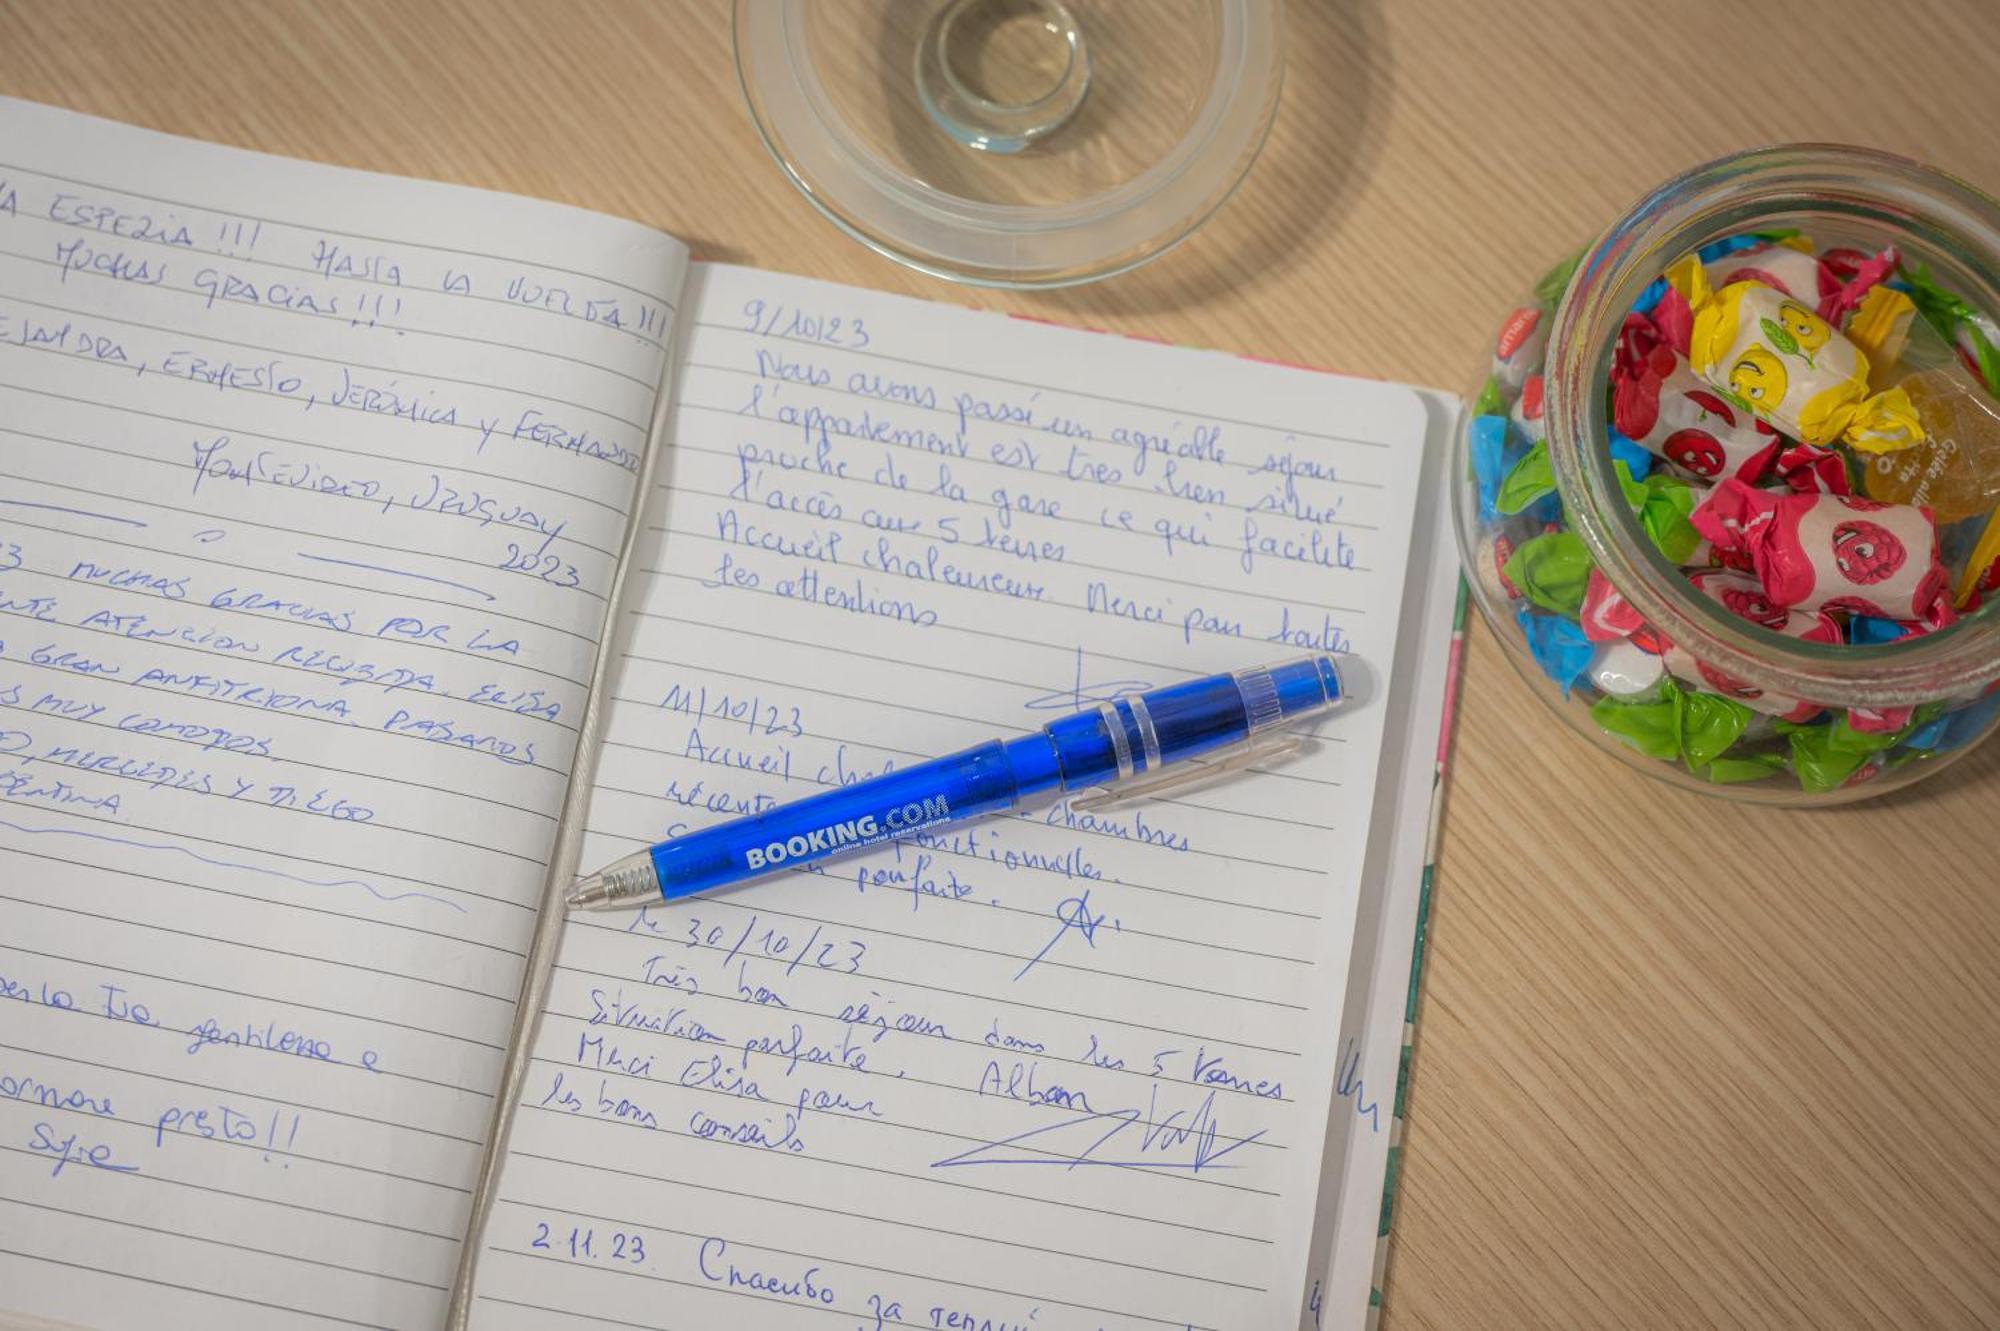 LA ESPEZIA!!! HASTA LA VUELTA!!!
MUCHAS GRACIAS!!!
EJANDRA, ERNESTO, VERÓNICA Y FERNANDO
MONTEVIDEO, URUGUAY
2023
3 MUCHAS GRACIAS POR LA
NTE ATENCION RECIBIDA. ELISA
GRAN ANFITRIONA. PASAMOS
S MUY COMODOS.
O, MERCEDES Y DIEGO
ENTINA.
per la tua gentilezza e
ornare presto!!
9/10/23
Nous avons passé un agréable séjour
l'appartement est tres bien situé
proche de la gare ce qui facilite
l'accès aux 5 terres
Accueil chaleureux. Merci pour toutes
les attentions
11/10/23
Accueil cha
récente chambres
fonctionnelles.
parfaite.
le 30/10/23
Très bon séjour dans les 5 Terres
Situation parfaite.
Merci Elisa pour
les bons conseils
Alban
2.11.23. Спасибо за
BOOKING.COM
online hotel reservations